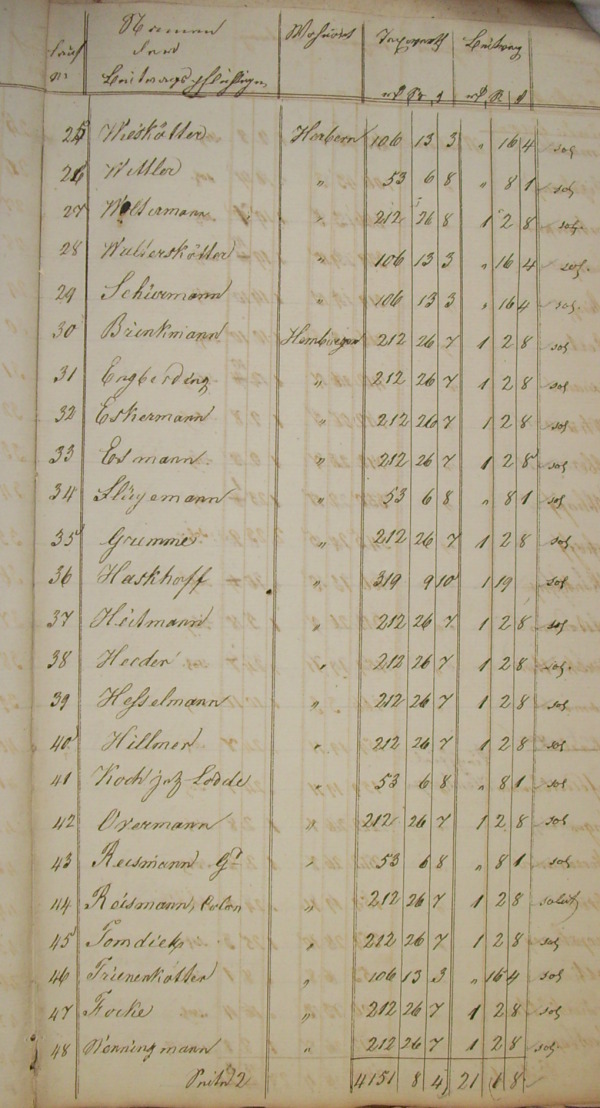 laufd Namen Wohnort Beitrag
N der
Beitragspflichtigen
25 Wieskötter Herbern 106 13 3 " 16 4 sol
26 Wittler " 53 6 8 " 8 1 sol
27 Woltermann " 212 26 8 1 2 8 sol.
28 Walterskötter " 106 13 3 " 16 4 sol.
29 Schürmann " 106 13 3 " 16 4 sol.
30 Brinkmann 212 26 7 1 2 8 sol
31 Engberding " 212 26 7 1 2 8 sol
32 Eskermann " 212 26 7 1 2 8 sol
33 Esmann " 212 26 7 1 2 8 sol
34 Flügemann " 53 6 8 " 8 1 sol
35 Grumme " 212 26 7 1 2 8 sol
36 Haskhoff " 319 9 10 1 19 sol
37 Heitmann " 212 26 7 1 2 8 sol
38 Herder " 212 26 7 1 2 8 sol.
39 Hesselmann " 212 26 7 1 2 8 sol
40 Hillmer " 212 26 7 1 2 8 sol
41 Koch Lodde " 53 6 8 " 8 1 sol
42 Overmann " 212 26 7 1 2 8 sol
43 Reismann Gr " 53 6 8 " 8 1 sol
44 Reismann, Colon " 212 26 7 1 2 8 solvt
45 Tomdiek " 212 26 7 1 2 8 sol
46 Trienenkötter " 106 13 3 " 16 4 sol
47 Focke " 212 26 7 1 2 8 sol
48 Wenningmann " 212 26 7 1 2 8 sol.
Seite 2 4151 8 4 21 8